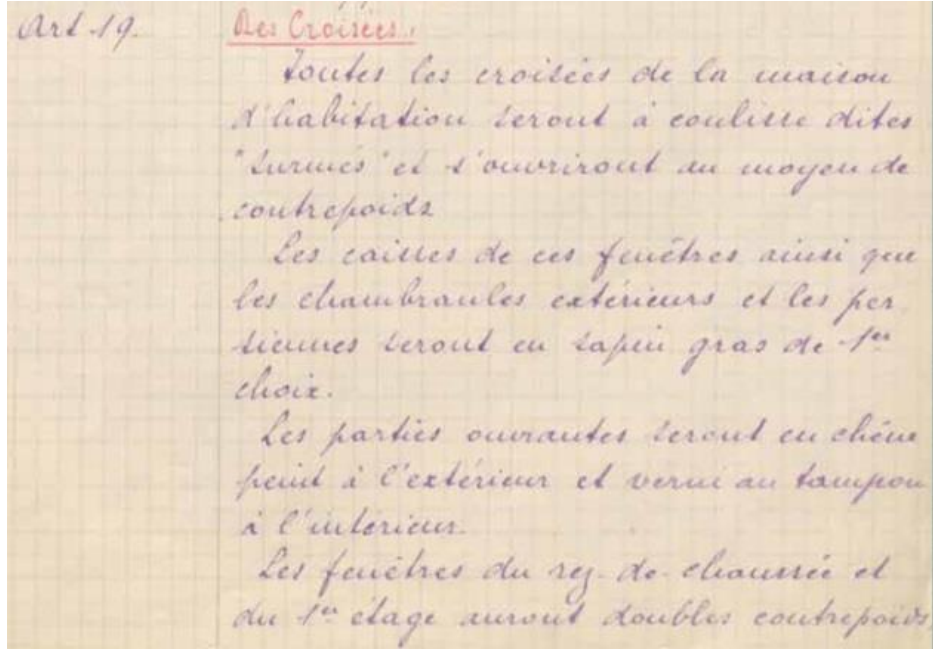 Art. 19. Des Croisées.
Toutes les croisées de la maison
d'habitation seront à coulisse dites
"surmés" et s'ouvriront au moyen de
contrepoids
Les caisses de ces fenêtres ainsi que
les chambranles extérieurs et les per
siennes seront en sapin gras de 1er
choix.
Les parties ouvrantes seront en chêne
peint à l'extérieur et verni au tampon
à l'intérieur.
Les fenêtres du rez-de-chaussée et
du 1er étage auront doubles contrepoids,